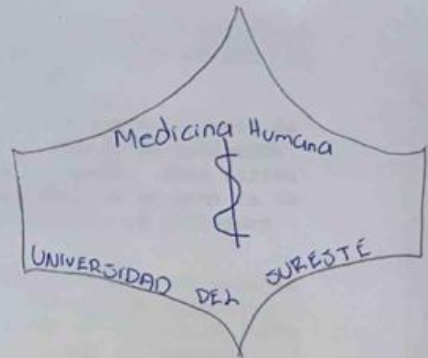 Medicina Humana
UNIVERSIDAD DEL SURESTE